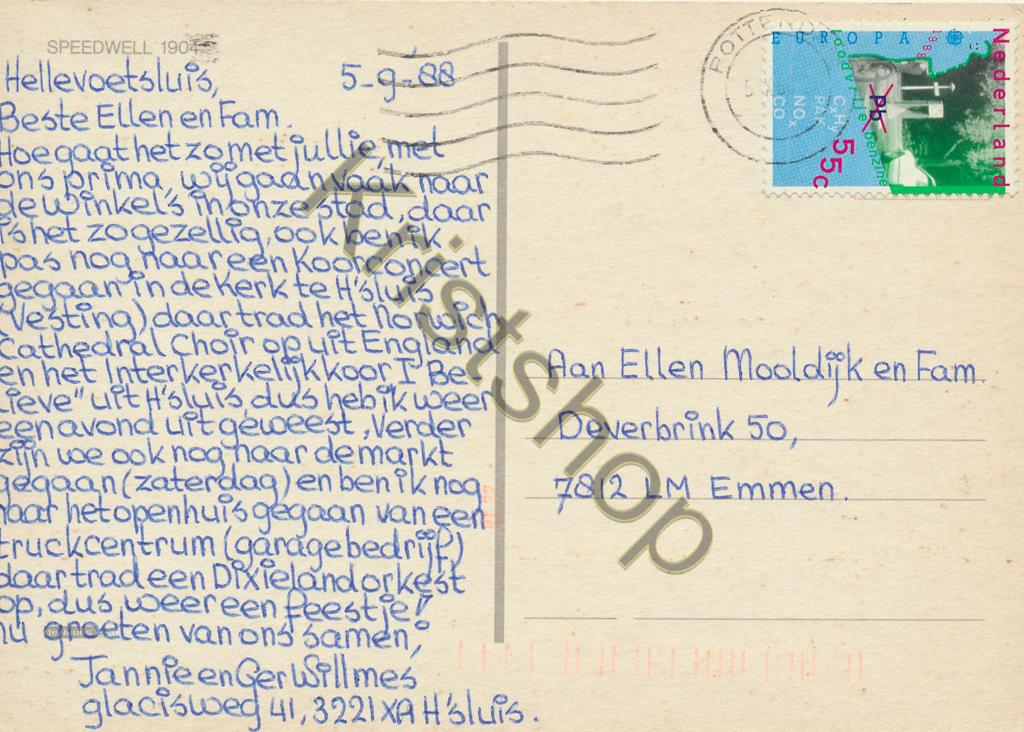 SPEEDWELL 1904
Hellevoetsluis, 5-9-88
Beste Ellen en Fam.
Hoe gaat het zo met jullie, met
ons prima, wij gaan vaak naar
de winkels in onze stad, daar
is het zo gezellig, ook ben ik
pas nog naar een Koorconcert
gegaan in de kerk te H'sluis
(Vesting) daar trad het Norwich
Cathedral Choir op uit England
en het Interkerkelijk koor I "Be
lieve" uit H'sluis, dus heb ik weer
een avond uit geweest, Verder
zijn we ook nog naar de markt
gegaan (zaterdag) en ben ik nog
naar het openhuis gegaan van een
truckcentrum (garagebedrijf)
daar trad een Dixieland orkest
op, dus weer een feestje!
nu groeten van ons samen,
Jannie en Ger Willmes
glacisweg 41, 3221 XA H'sluis.
Aan Ellen Mooldijk en Fam.
Deverbrink 50,
7812 LM Emmen.
ROTTERD
EUROPA
1988
Nederland
loodvrije benzine
Pb
CxHy
PA
NOx
CO
55c
Kristshop